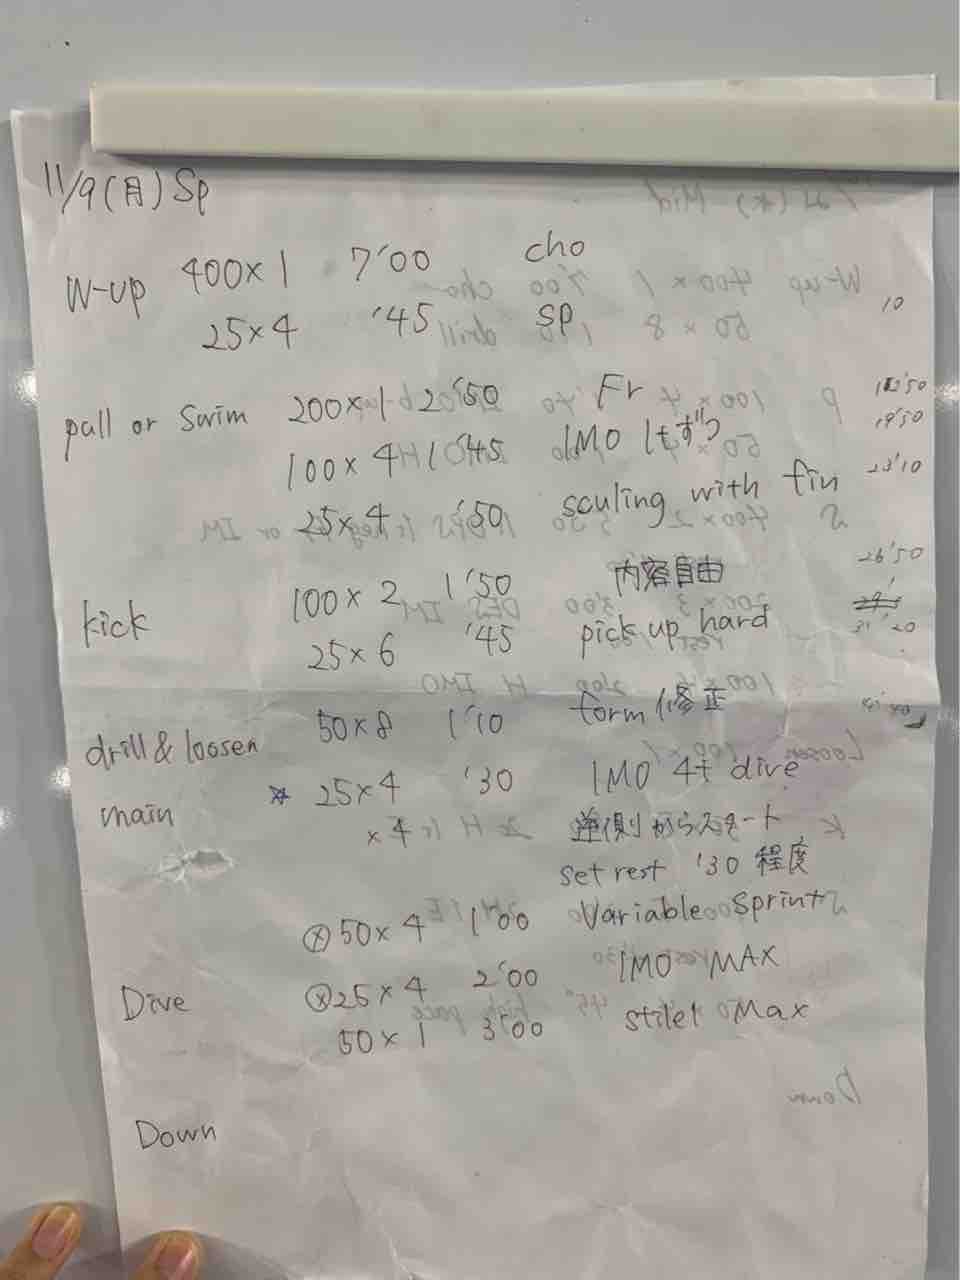 11/9(月) Sp
W-up 400×1 7'00 cho
25×4 '45 sp 10
pull or swim 200×1 2'50 Fr
100×4 1'45 IMO 1tずつ 19'50
25×4 '50 sculing with fin 23'10
kick 100×2 1'50 内容自由 26'50
25×6 '45 pick up hard 31'20
drill & loosen 50×8 1'10 form修正
main ☆ 25×4 '30 IMO 4t dive
×4 逆側からスタート
set rest '30 程度
ⓧ50×4 1'00 Variable Sprint
Dive ⓧ25×4 2'00 IMO MAX
50×1 3'00 stile1 Max
Down